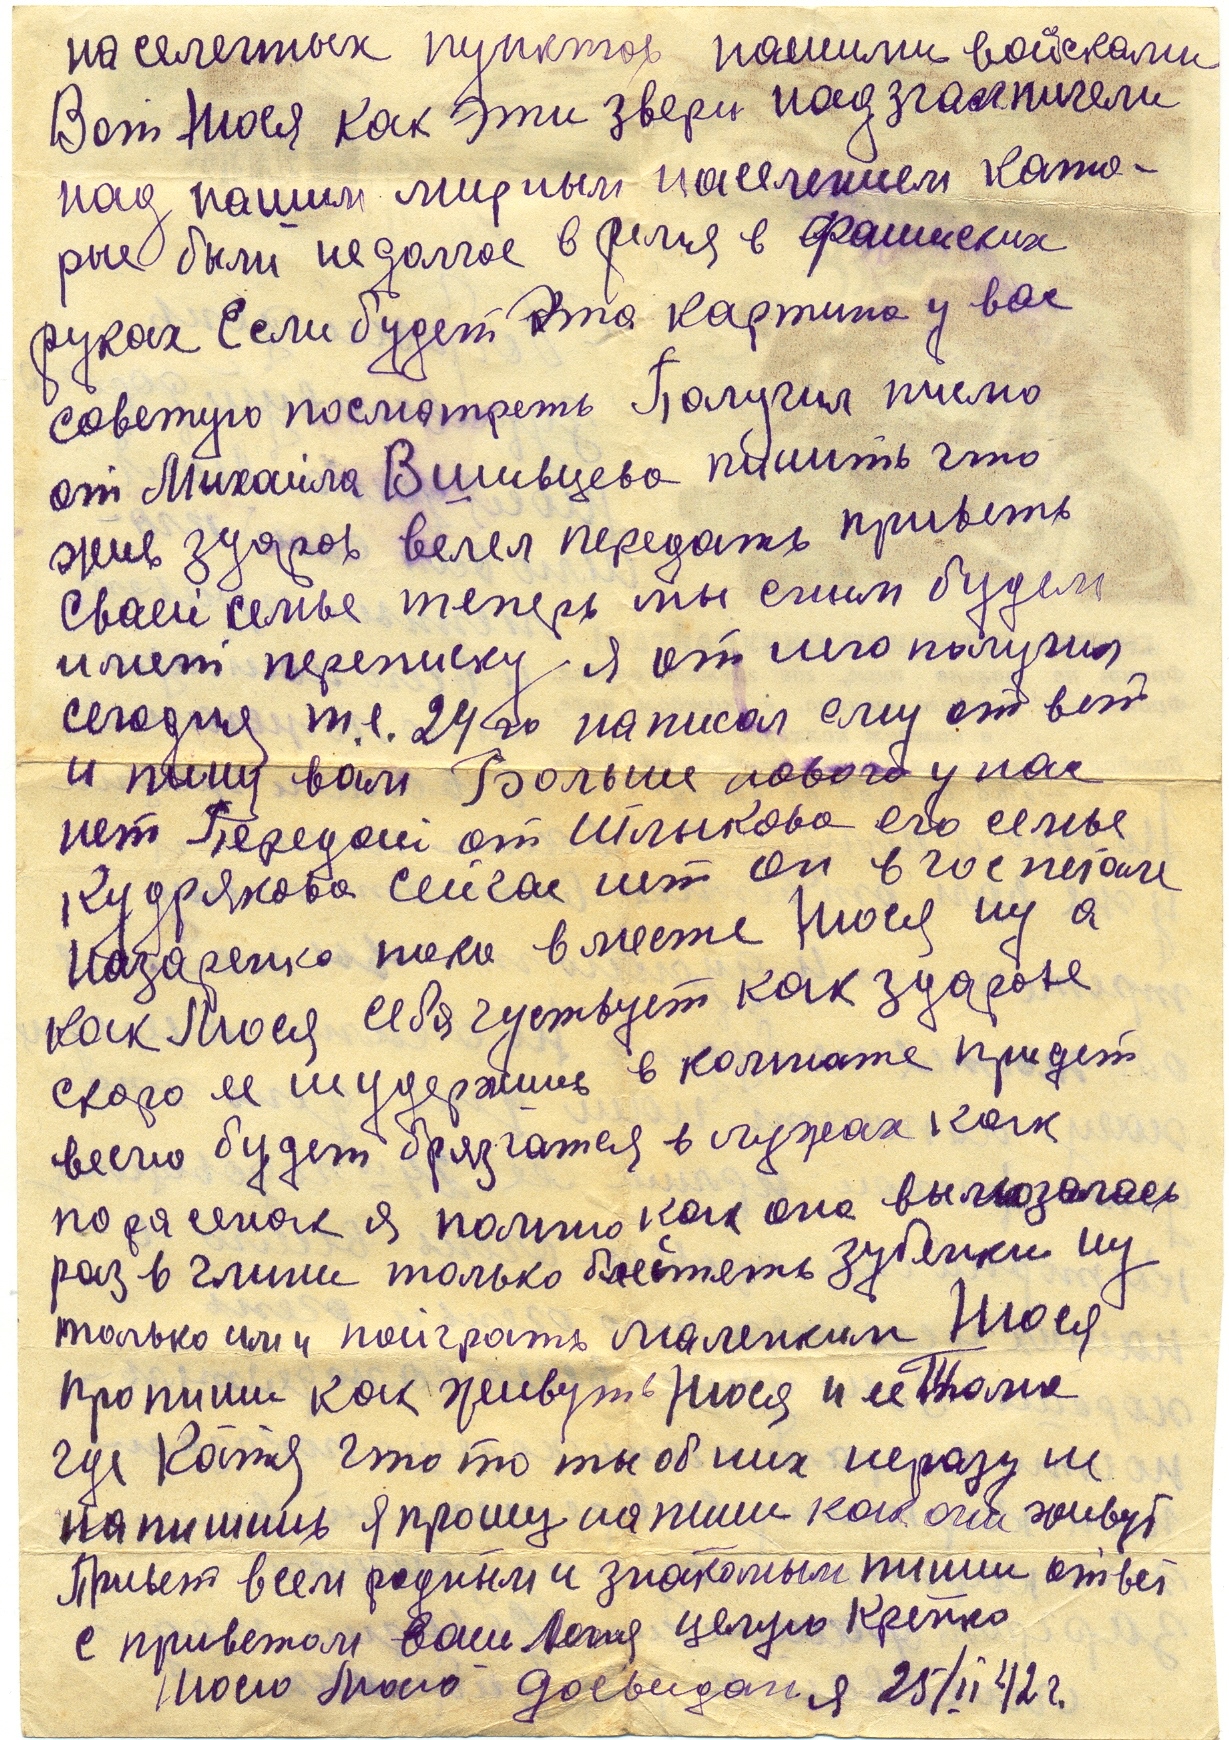 населенных пунктов нашими войсками
Вот Нюся как эти звери над згампичели
над нашим мирным населением като-
рые были недолгое время в фашиских
руках Если будет эта картина у вас
советую посмотреть Получил писмо
от Михаила Вшивцева пишить что
жив здаров велел передать приветь
сваей семье теперь мы сним будем
имет переписку я от него получил
сегодня т.е. 24 го написал ему ответ
и пишу вам Больше нового у нас
нет Передай от Шлыкова его семье
Кудрякова сейчас нет он в госпетале
Назаренко пока вместе Нюся ну а
как Люся себя чуствует как здаровье
скоро ее неудержишь в комнате придет
весно будет брязгатся в лужах как
порасенок я помню как она вымазалась
раз в глини только блестять зубенки ну
только им и поиграть маленким Нюся
пропиши как живуть Нюся и ее Толя
где Катя что то ты об них неразу не
напишишь я прошу напиши как они живут
Привет всем родным и знакомым пиши ответ
с приветом ваш Леня целую крепко
Нюсю Люсю досвидания 25/II 42 г.